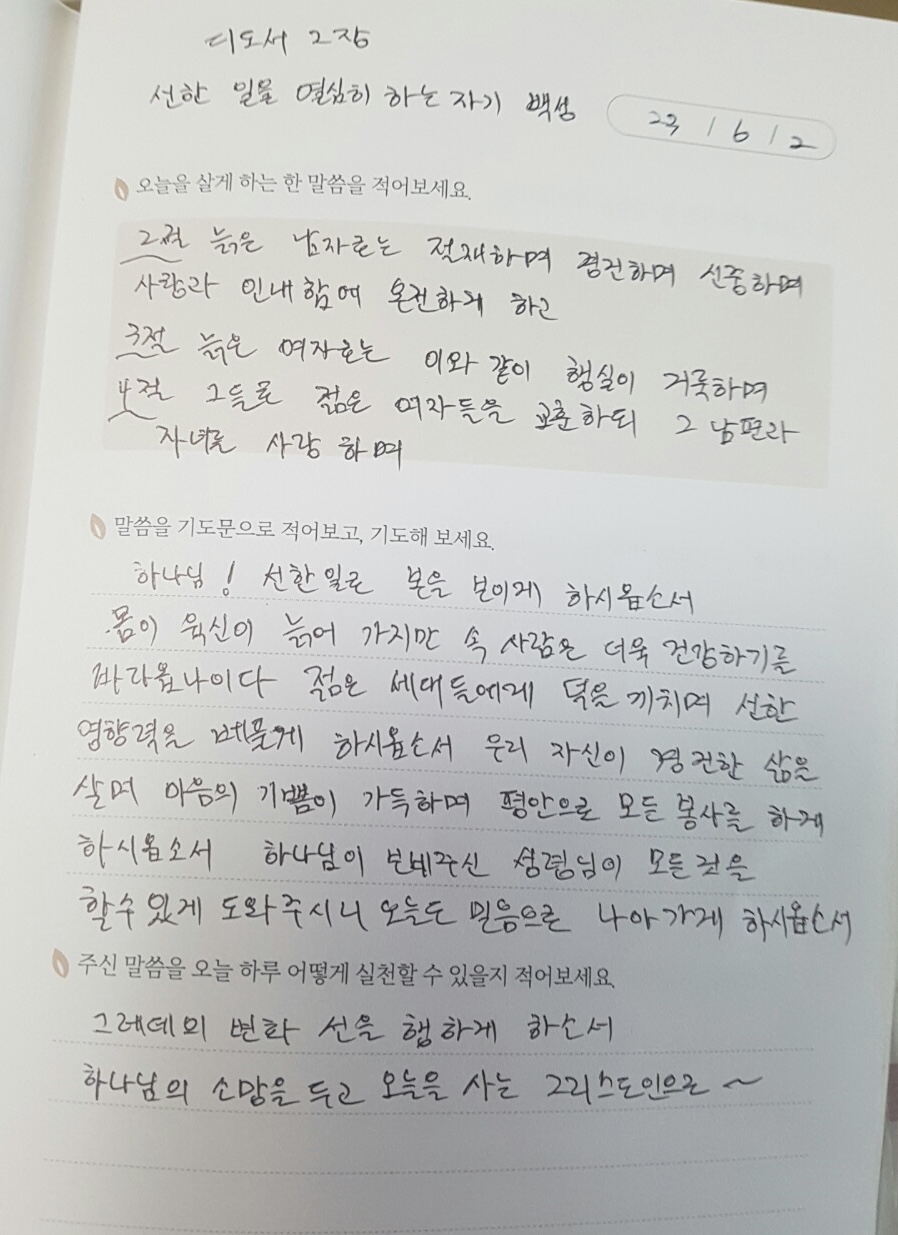 디도서 2장
선한 일을 열심히 하는 자기 백성
23 / 6 / 2
오늘을 살게 하는 한 말씀을 적어보세요.
2절 늙은 남자로는 절재하며 경건하며 신중하며
사랑과 인내함에 온전하게 하고
3절 늙은 여자로는 이와 같이 행실이 거룩하며
4절 그들로 젊은 여자들을 교훈하되 그 남편과
자녀를 사랑 하며
말씀을 기도문으로 적어보고, 기도해 보세요.
하나님! 선한일로 본을 보이게 하시옵소서
몸이 육신이 늙어 가지만 속 사람은 더욱 건강하기를
바라옵나이다 젊은 세대들에게 덕을 끼치며 선한
영향력을 베풀게 하시옵소서 우리 자신이 경건한 삶을
살며 마음의 기쁨이 가득하며 평안으로 모든 봉사를 하게
하시옵소서 하나님이 보내주신 성령님이 모든 것을
할수 있게 도와주시니 오늘도 믿음으로 나아가게 하시옵소서
주신 말씀을 오늘 하루 어떻게 실천할 수 있을지 적어보세요.
그레데의 변화 선을 행하게 하소서
하나님의 소망을 두고 오늘을 사는 그리스도인으로 ~